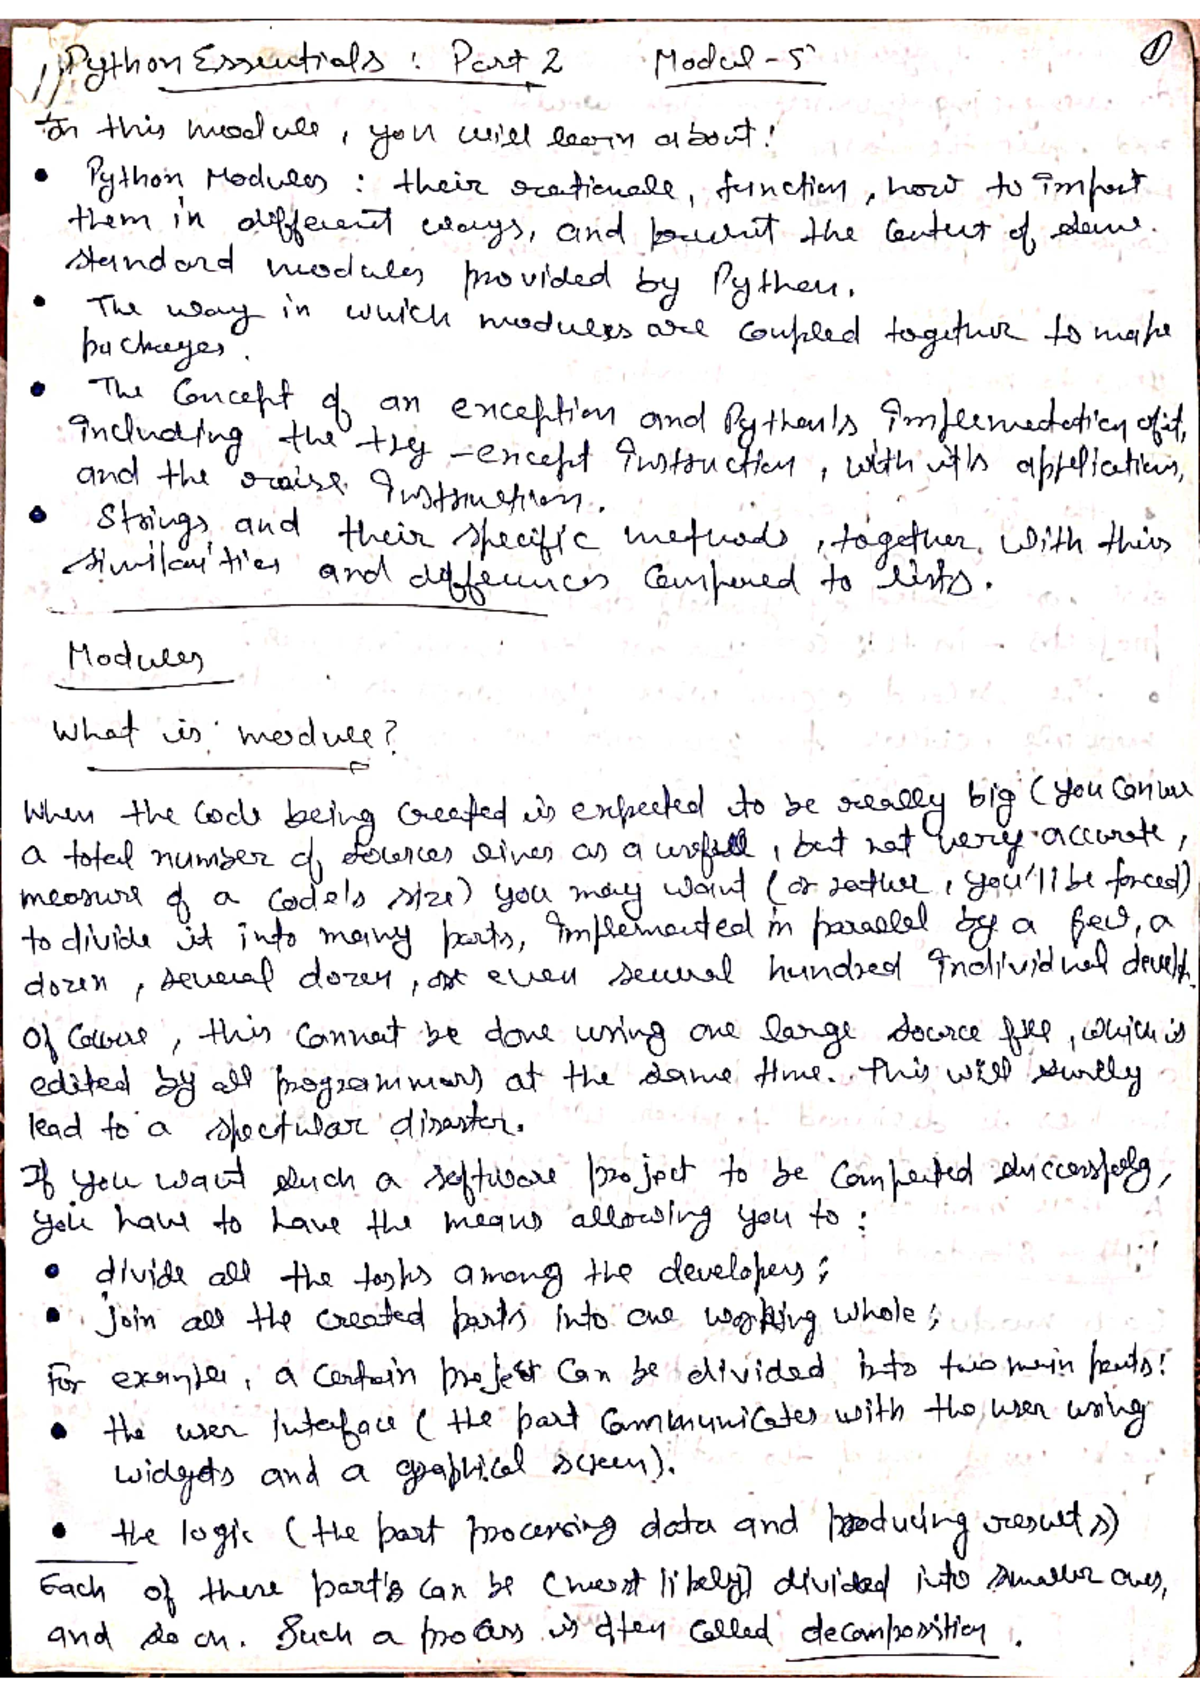 Python Essentials : Part 2 Modul - 5 1
In this module, you will learn about!
• Python Modules : their rationale, function, how to import
them in different ways, and the content of some.
standard modules provided by Python.
• The way in which modules are coupled together to make
packages.
• The Concept of an exception and Python's implemetation of it,
including the try - except instruction, with its applications,
and the raise instruction.
• Strings and their specific methods, together with their
similarities and differences compared to lists.
Modules
What is module?
When the code being created is expected to be really big (you can use
a total number of source lines as a usefull, but not very accurate,
measure of a code's size) you may want (or rather, you'll be forced)
to divide it into many parts, implemented in parallel by a few, a
dozen, several dozen, or even several hundred individual develp.
Of course, this cannot be done using one large source file, which is
edited by all programmers at the same time. This will surely
lead to a spectular disaster.
If you want such a software project to be completed successfully,
you have to have the means allowing you to :
• divide all the tasks among the developers;
• join all the created parts into one working whole;
For example, a certain project can be divided into two main parts!
• the user interface (the part communicates with the user using
widgets and a graphical screen).
• the logic (the part processing data and producing results)
Each of these part's can be (most likely) divided into smaller ones,
and so on. Such a process is often called decomposition.